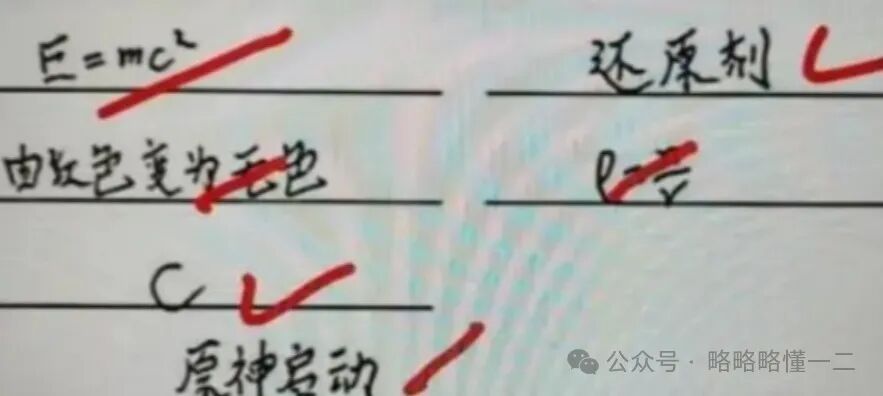 E=mc² 还原剂
由红色变为无色 ρ=m/v
C
原神启动
公众号·略略略懂一二